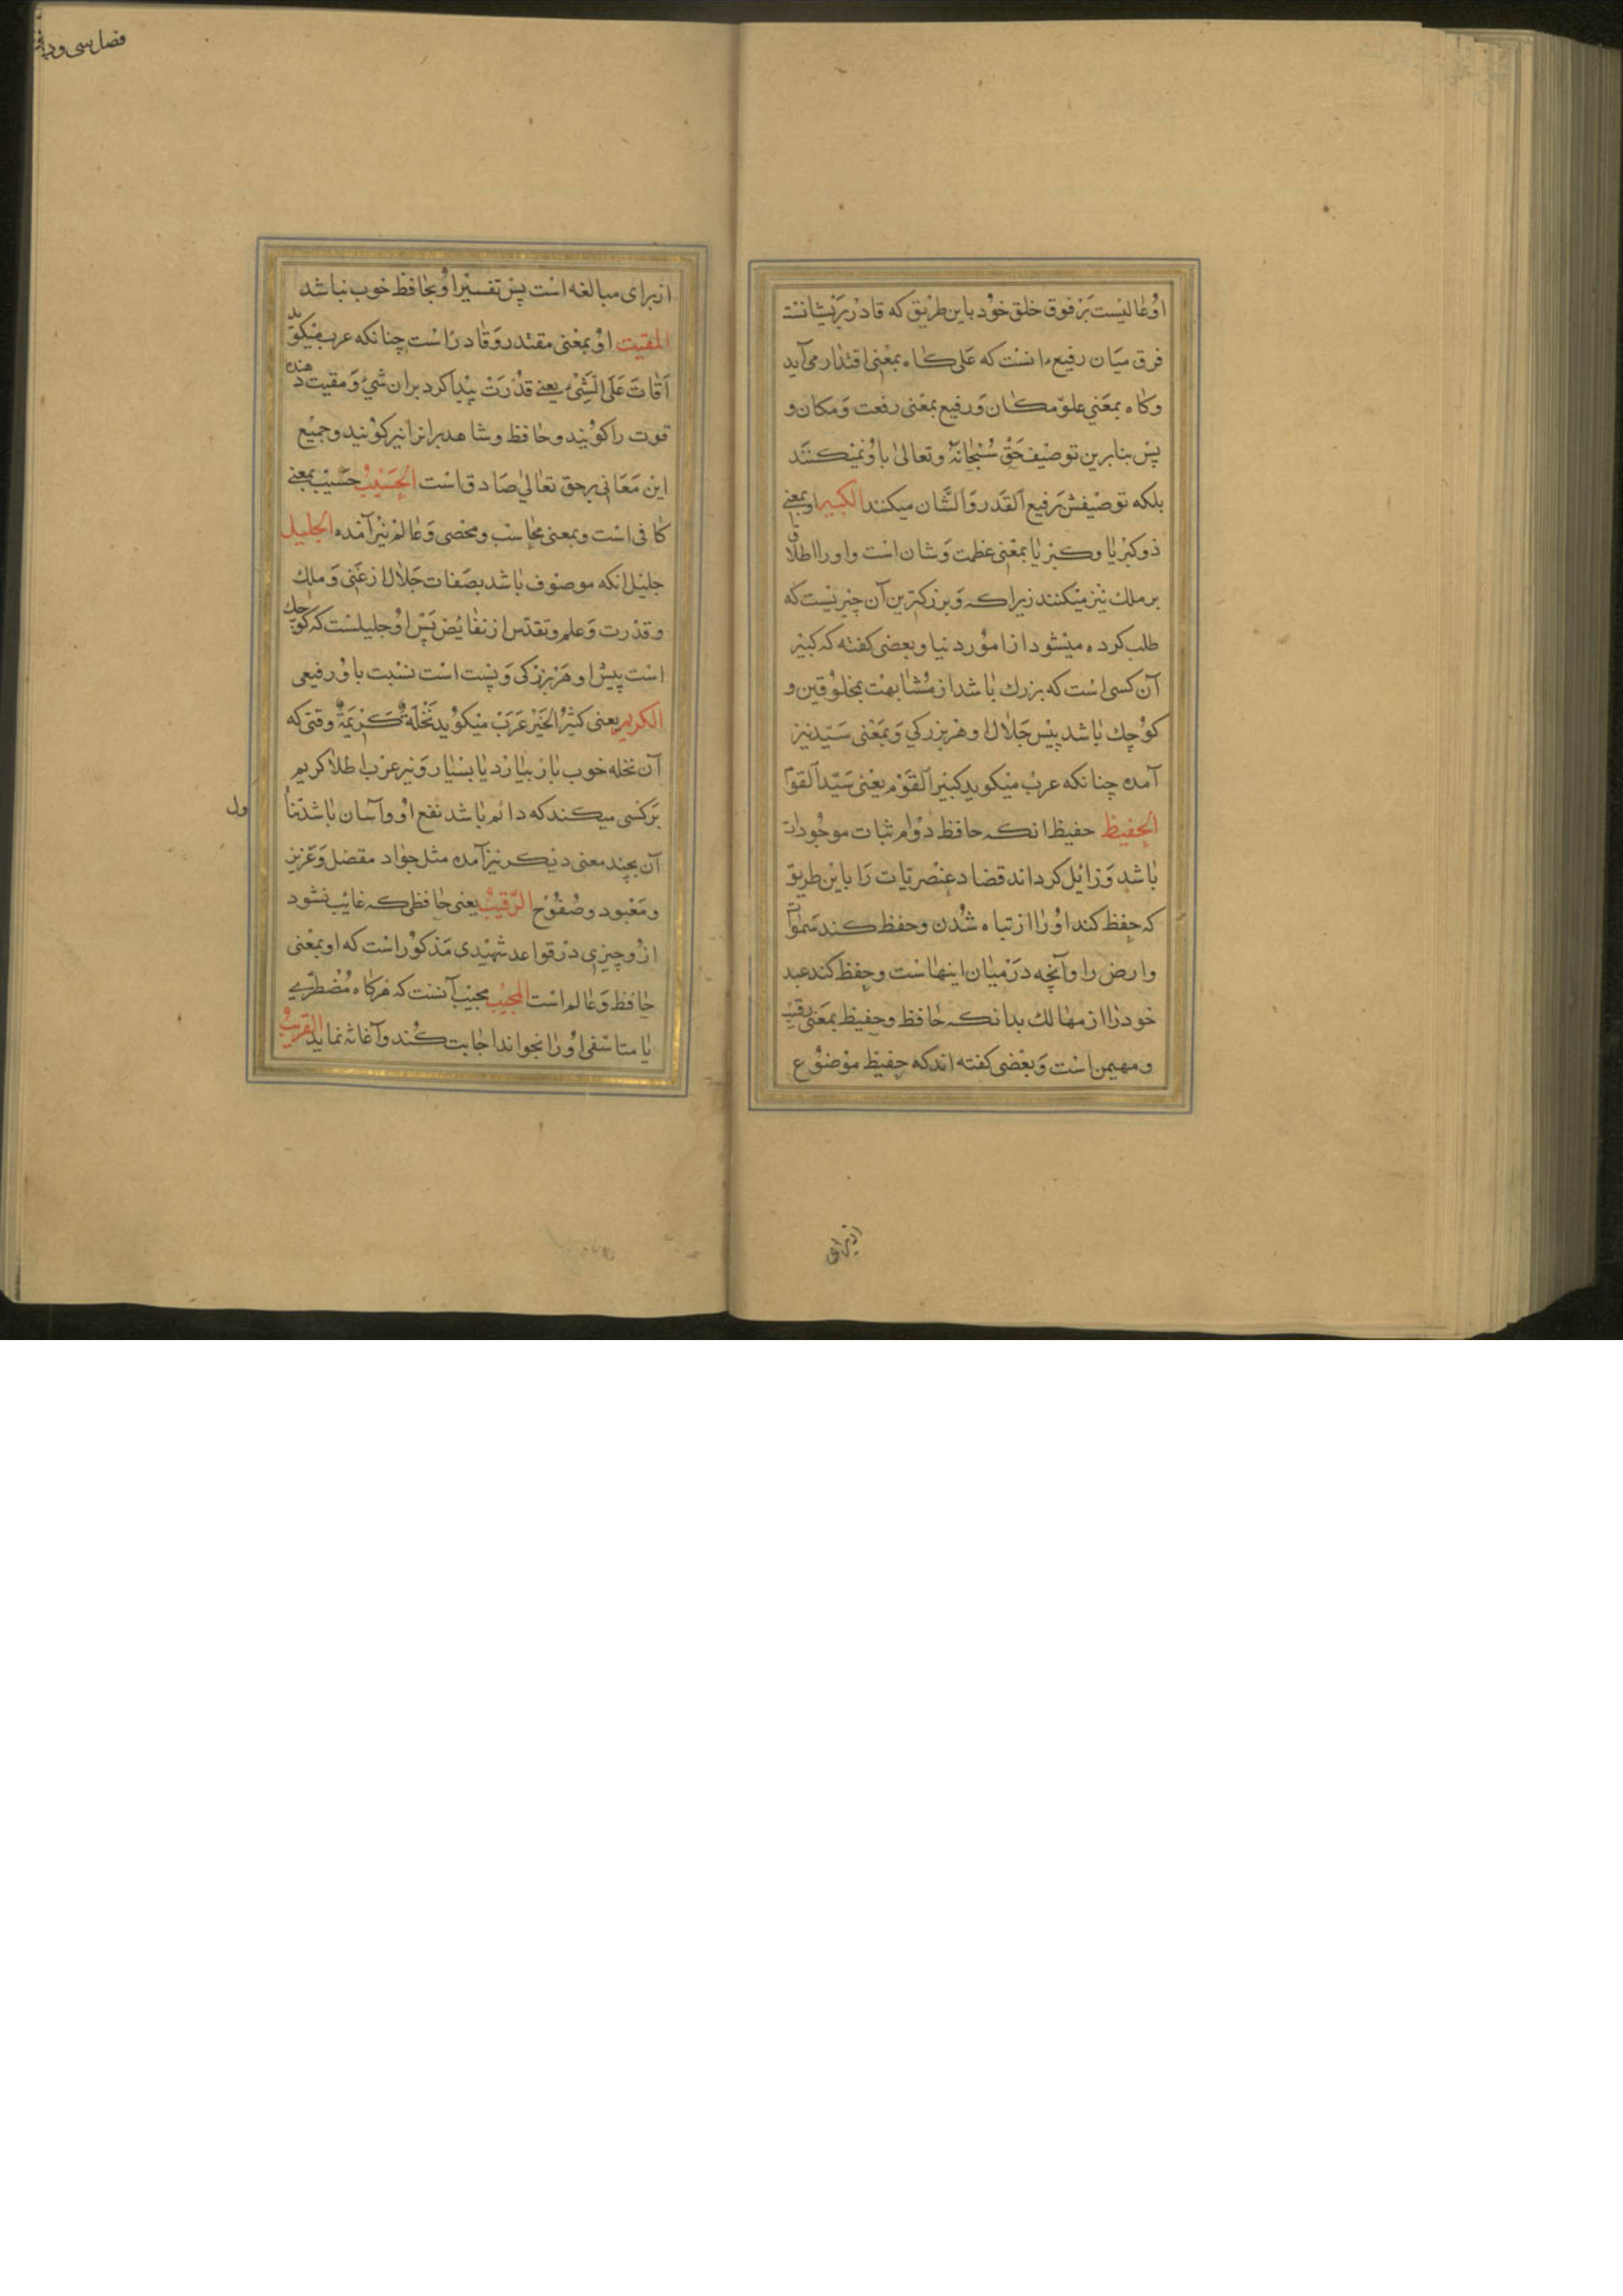 اوُ عٰالیست بَرْ فوق خلق خوُد باین طریق که قادر بَریشانست
فرق میَان رفیع انست که عَلی کاه بمعنی اقتدار می آید
وکاه بمعَنی علوّ مکان وَرفیع بمعنی رفعت وَمکان و
پس بنابرین توصیف حَقْ سُبْحانَهُ وتعالیٰ باوُ نمیکنند
بلکه توصیفش رفیع اَلقَدر وَالشَّان میکنند الکبیر او بمعنی
ذو کبریٰا وکبریٰا بمعنی عظمت وَشان است واورا اطلاق
بر ملك نیز میکنند زیراکه وَبزرکترین آن چیزیست که
طلب کرده میشود از اموُر دنیا وبعضی کفته که کبیر
آن کسی است که بزرك بٰاشد از مُشٰابهت بمخلوُقین و
کوُچك بٰاشد پیش جَلال او هر بزرکی وَبمعنی سَیّد نیز
آمده چنانکه عربْ میکوید کبیر اَلقَوْم یعنی سَیّد اَلقوم
الحفیظ حفیظ انکه حافظ دوٰام ثبات موجُودات
بٰاشد وَزائیل کرداند قضاد عنصریّات رَا باین طریق
که حفظ کند اوُ رٰا از تباه شُدن وحفظ کند سَموٰات
وارض را وآنچه دَرْ میٰان اینهٰاست وحفظ کند عبد
خود رٰا از مهٰالك بدانکه حٰافظ وحفیظ بمعَنی رقیب
ومهیمن است وَبعضی کفته اند که حفیظ موْضوُع
ازبرای
فصل سی ود
از برای مبالغه است پس تفسیر اوُ بحٰافظ خوب نباشد
المقیت اوُ بمعْنی مقتدر وَقٰادر است چنانکه عرب میکوید
اَقٰاتَ عَلَی الَشِّیْ یعنی قدْرَتْ پیدا کرد بران شئ وَمقیت دهنده
قوت را کوُیند وحٰافظ وشاهد برانرا نیز کوُیند وجمیع
این مَعَانی برحق تعٰالیٰ صَادق است الحَسیْبُ حَسْیب بمعنی
کٰافی است وبمعنی محٰاسب ومحصی وَعٰالم نیز آمده الجلیل
جلیل انکه موصوف بٰاشد بصَفات جَلٰال از غَنی وَملك
وقدرت وَعلم وتقدّس از نقٰایُض پَسْ اوُ جلیلست که کوُچك
است پیش او هَرْ بزرْکی وَپست است نسْبت باوُ رفیعی
الکریم یعنی کثیرُ الخَیر عَرَبْ میکوُید نَخْلَةٌ کَریَمَةٌ وقتی که
آن نخله خوب بٰار بیٰارَد یٰا بسیٰار وَنیز عرب اطلٰا کریم
بَر کسی میکند که دائم بٰاشد نفع اوُ وآسان بٰاشد تنا
ول
آن بچند معنی دیکر نیز آمده مثل جوٰاد مفضل وَعَزیز
ومَعْبود وصُفوُح الرَّقیبُ یعنی حٰافظی که غائیب نشود
ازُو چیزی در قواعد شهیدی مَذکوُر است که او بمعْنی
حٰافظ وَعٰالم است المجیْبُ مجیب آنست که هرکٰاه مُضْطرّی
یٰا متاسْفی اوُ رٰا بخواند اجٰابت کُند وآغاثه نماید القریبُ